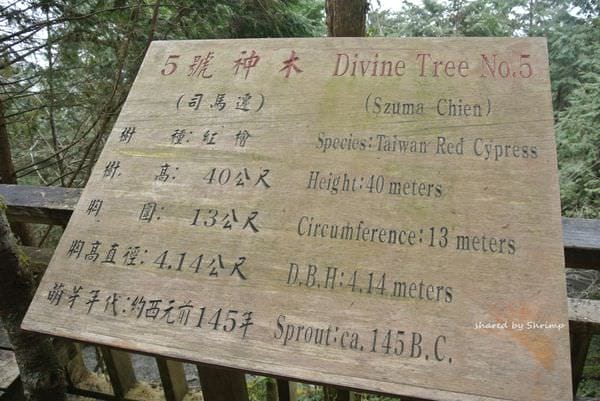 5號神木 Divine Tree No.5
(司馬遷) (Szuma Chien)
樹種:紅檜 Species:Taiwan Red Cypress
樹高:40公尺 Height:40 meters
胸圍:13公尺 Circumference:13 meters
胸高直徑:4.14公尺 D.B.H:4.14 meters
萌芽年代:約西元前145年 Sprout:ca. 145B.C.
shared by Shrimp